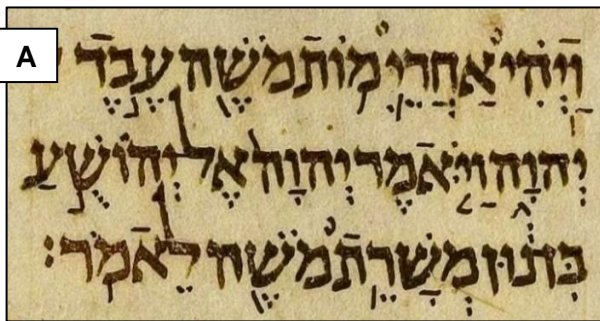 A
וַיְהִי אַחֲרֵי מוֹת מֹשֶׁה עֶבֶד
יְהוָה וַיֹּאמֶר יְהוָה אֶל יְהוֹשֻׁעַ
בִּן נוּן מְשָׁרֵת מֹשֶׁה לֵאמֹר׃